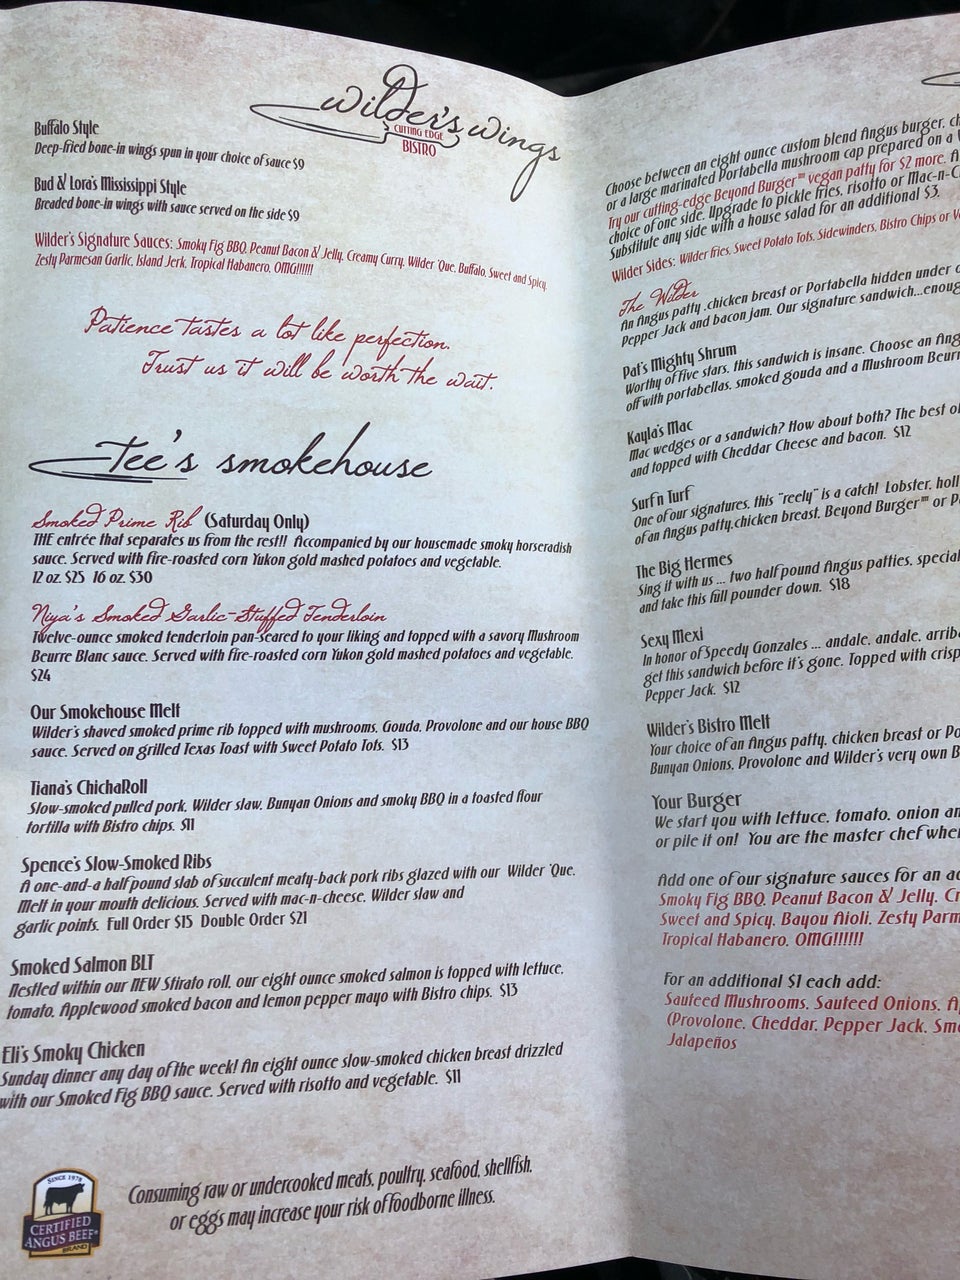 wilder's wings
CUTTING EDGE
BISTRO
Buffalo Style
Deep-fried bone-in wings spun in your choice of sauce $9
Bud & Lora's Mississippi Style
Breaded bone-in wings with sauce served on the side $9
Wilder's Signature Sauces: Smoky Fig BBQ, Peanut Bacon & Jelly, Creamy Curry, Wilder 'Que, Buffalo, Sweet and Spicy,
Zesty Parmesan Garlic, Island Jerk, Tropical Habanero, OMG!!!!!!
Patience tastes a lot like perfection.
Trust us it will be worth the wait.
Tee's smokehouse
Smoked Prime Rib (Saturday Only)
THE entrée that separates us from the rest!! Accompanied by our housemade smoky horseradish
sauce. Served with fire-roasted corn Yukon gold mashed potatoes and vegetable.
12 oz. $25 16 oz. $30
Niya's Smoked Garlic-Stuffed Tenderloin
Twelve-ounce smoked tenderloin pan-seared to your liking and topped with a savory Mushroom
Beurre Blanc sauce. Served with fire-roasted corn Yukon gold mashed potatoes and vegetable.
$24
Our Smokehouse Melt
Wilder's shaved smoked prime rib topped with mushrooms, Gouda, Provolone and our house BBQ
sauce. Served on grilled Texas Toast with Sweet Potato Tots. $13
Tiana's ChichaRoll
Slow-smoked pulled pork, Wilder slaw, Bunyan Onions and smoky BBQ in a toasted flour
tortilla with Bistro chips. $11
Spence's Slow-Smoked Ribs
A one-and-a half pound slab of succulent meaty-back pork ribs glazed with our Wilder 'Que.
Melt in your mouth delicious. Served with mac-n-cheese, Wilder slaw and
garlic points. Full Order $15 Double Order $21
Smoked Salmon BLT
Nestled within our NEW Stirato roll, our eight ounce smoked salmon is topped with lettuce,
tomato, Applewood smoked bacon and lemon pepper mayo with Bistro chips. $13
Eli's Smoky Chicken
Sunday dinner any day of the week! An eight ounce slow-smoked chicken breast drizzled
with our Smoked Fig BBQ sauce. Served with risotto and vegetable. $11
SINCE 1978
CERTIFIED
ANGUS BEEF®
BRAND
Consuming raw or undercooked meats, poultry, seafood, shellfish,
or eggs may increase your risk of foodborne illness.
Choose between an eight ounce custom blend Angus burger, ch
or a large marinated Portabella mushroom cap prepared on a
Try our cutting-edge Beyond Burger™ vegan patty for $2 more. A
choice of one side. Upgrade to pickle fries, risotto or Mac-n-C
Substitute any side with a house salad for an additional $3.
Wilder Sides: Wilder fries, Sweet Potato Tots, Sidewinders, Bistro Chips or Ve
The Wilder
An Angus patty ,chicken breast or Portabella hidden under
Pepper Jack and bacon jam. Our signature sandwich...enoug
Pat's Mighty Shrum
Worthy of five stars, this sandwich is insane. Choose an Ang
off with portabellas, smoked gouda and a Mushroom Beurr
Kayla's Mac
Mac wedges or a sandwich? How about both? The best of
and topped with Cheddar Cheese and bacon. $12
Surf'n Turf
One of our signatures, this "reely" is a catch! Lobster, holl
of an Angus patty,chicken breast, Beyond Burger™ or P
The Big Hermes
Sing it with us ... two half pound Angus patties, special
and take this full pounder down. $18
Sexy Mexi
In honor of Speedy Gonzales ... andale, andale, arriba
get this sandwich before it's gone. Topped with crisp
Pepper Jack. $12
Wilder's Bistro Melt
Your choice of an Angus patty, chicken breast or Po
Bunyan Onions, Provolone and Wilder's very own B
Your Burger
We start you with lettuce, tomato, onion an
or pile it on! You are the master chef when
Add one of our signature sauces for an ad
Smoky Fig BBQ, Peanut Bacon & Jelly, Cr
Sweet and Spicy, Bayou Aioli, Zesty Parm
Tropical Habanero, OMG!!!!!!
For an additional $1 each add:
Sauteed Mushrooms, Sauteed Onions, Ap
(Provolone, Cheddar, Pepper Jack, Smo
Jalapeños